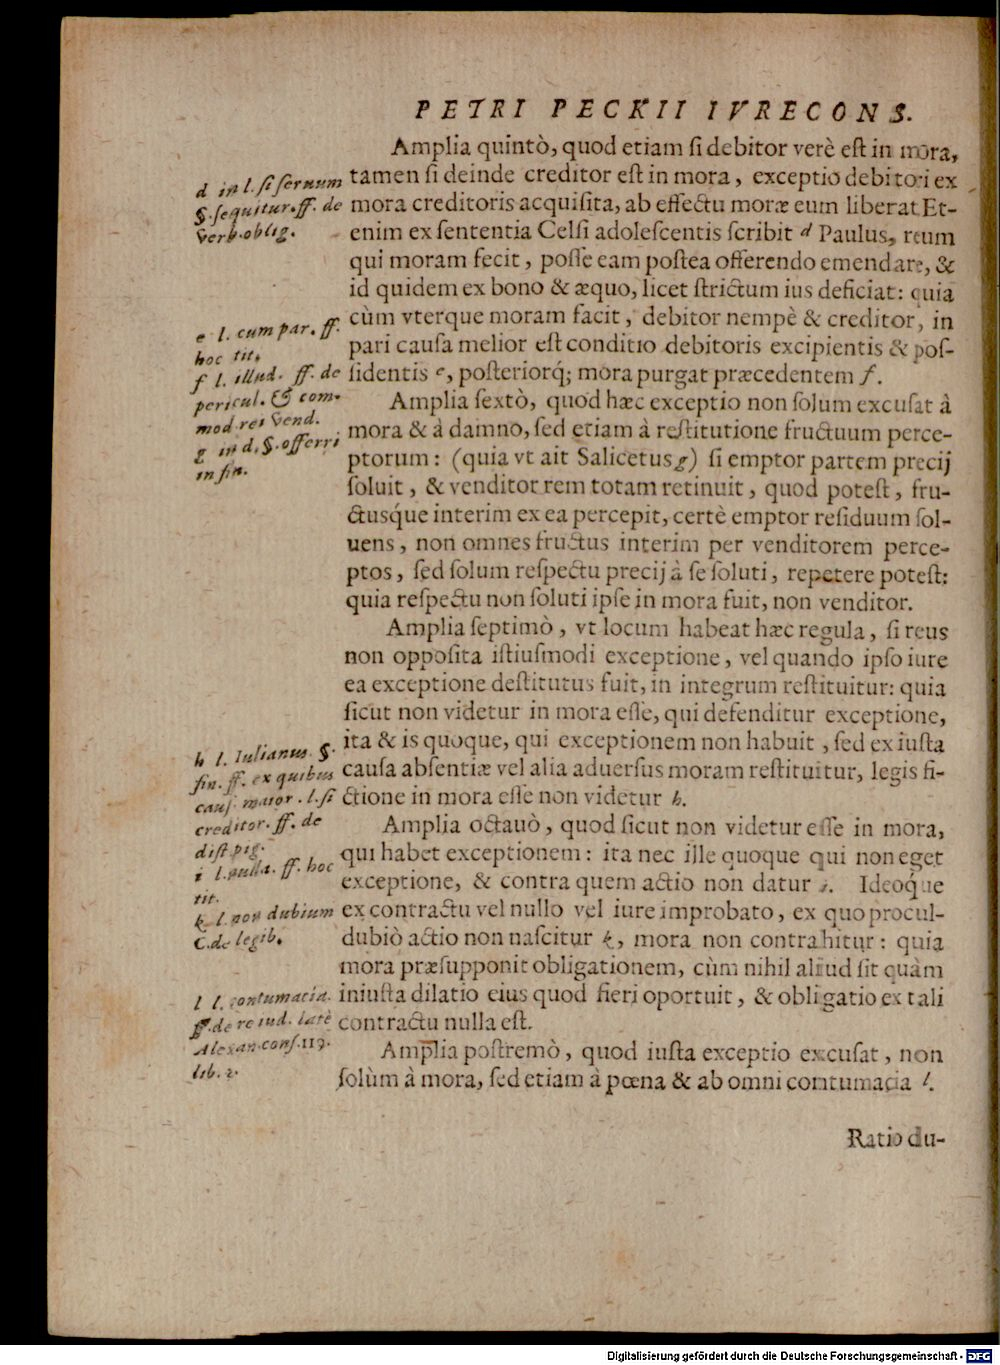 PETRI PECKII IVRECONS.
Amplia quintò, quod etiam ſi debitor verè eſt in mora,
tamen ſi deinde creditor eſt in mora, exceptio debitori ex
mora creditoris acquiſita, ab effectu moræ eum liberat Et-
enim ex ſententia Celſi adoleſcentis ſcribit d Paulus, reum
qui moram fecit, poſſe eam poſtea offerendo emendare, &
id quidem ex bono & æquo, licet ſtrictum ius deficiat: quia
cùm vterque moram facit, debitor nempè & creditor, in
pari cauſa melior eſt conditio debitoris excipientis & poſ-
ſidentis e, poſteriorq́; mora purgat præcedentem f.
Amplia ſextò, quod hæc exceptio non ſolum excuſat à
mora & à damno, ſed etiam à reſtitutione fructuum perce-
ptorum: (quia vt ait Salicetus g) ſi emptor partem precij
ſoluit, & venditor rem totam retinuit, quod poteſt, fru-
ctusq́ue interim ex ea percepit, certè emptor reſiduum ſol-
uens, non omnes fructus interim per venditorem perce-
ptos, ſed ſolum reſpectu precij à ſe ſoluti, repetere poteſt:
quia reſpectu non ſoluti ipſe in mora fuit, non venditor.
Amplia ſeptimò, vt locum habeat hæc regula, ſi reus
non oppoſita iſtiuſmodi exceptione, vel quando ipſo iure
ea exceptione deſtitutus fuit, in integrum reſtituitur: quia
ſicut non videtur in mora eſſe, qui defenditur exceptione,
ita & is quoque, qui exceptionem non habuit, ſed ex iuſta
cauſa abſentiæ vel alia aduerſus moram reſtituitur, legis fi-
ctione in mora eſſe non videtur h.
Amplia octauò, quod ſicut non videtur eſſe in mora,
qui habet exceptionem: ita nec ille quoque qui non eget
exceptione, & contra quem actio non datur i. Ideoq́ue
ex contractu vel nullo vel iure improbato, ex quo procul-
dubiò actio non naſcitur k, mora non contrahitur: quia
mora præſupponit obligationem, cùm nihil aliud ſit quàm
iniuſta dilatio eius quod fieri oportuit, & obligatio ex tali
contractu nulla eſt.
Amplia poſtremò, quod iuſta exceptio excuſat, non
ſolùm à mora, ſed etiam à pœna & ab omni contumacia l.
Ratio du-
d in l. ſi ſeruum
§. ſequitur. ff. de
verb. oblig.
e l. cum par. ff.
hoc tit.
f l. illud. ff. de
pericul. & com-
mod rei vend.
g in d. §. offerri
in fin.
h l. Iulianus. §.
fin. ff. ex quibus
cauſ. maior. l. ſi
creditor. ff. de
diſt. pig.
i l. nulla. ff. hoc
tit.
k l. non dubium
C. de legib.
l l. contumacia.
ff. de re iud. latè
Alexan. conſ. 119.
lib. 2.
Digitalisierung gefördert durch die Deutsche Forschungsgemeinschaft - DFG